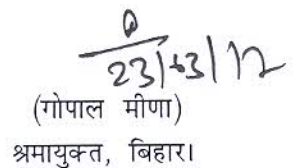 23/03/12
(गोपाल मीणा)
श्रमायुक्त, बिहार।